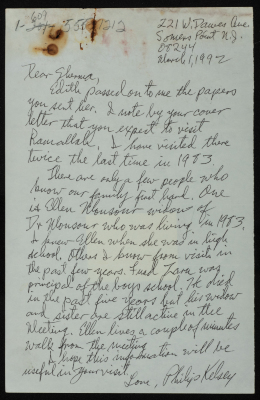 609
1- 5
221 W. Ave.
Somers Point N.J.
08244
March 1, 1992
Dear
Edith passed on to me the papers
you sent her. I note by your cover
letter that you expect to visit
Ramallah. I have visited there
twice the last time in 1983
There are only a few people who
know our family first hand. One
is Ellen Monsour widow of
Dr Monsour who was living in 1983.
I knew Ellen when she was in high
school. Others I know from visits in
the past few years. Fuad Zaru was
principal of the boys school. He died
in the past five years but his widow
and sister are still active in the
Meeting. Ellen lives a couple of minutes
walk from the meeting
I hope this information will be
useful in your visit.
Love, Philip Kelsey